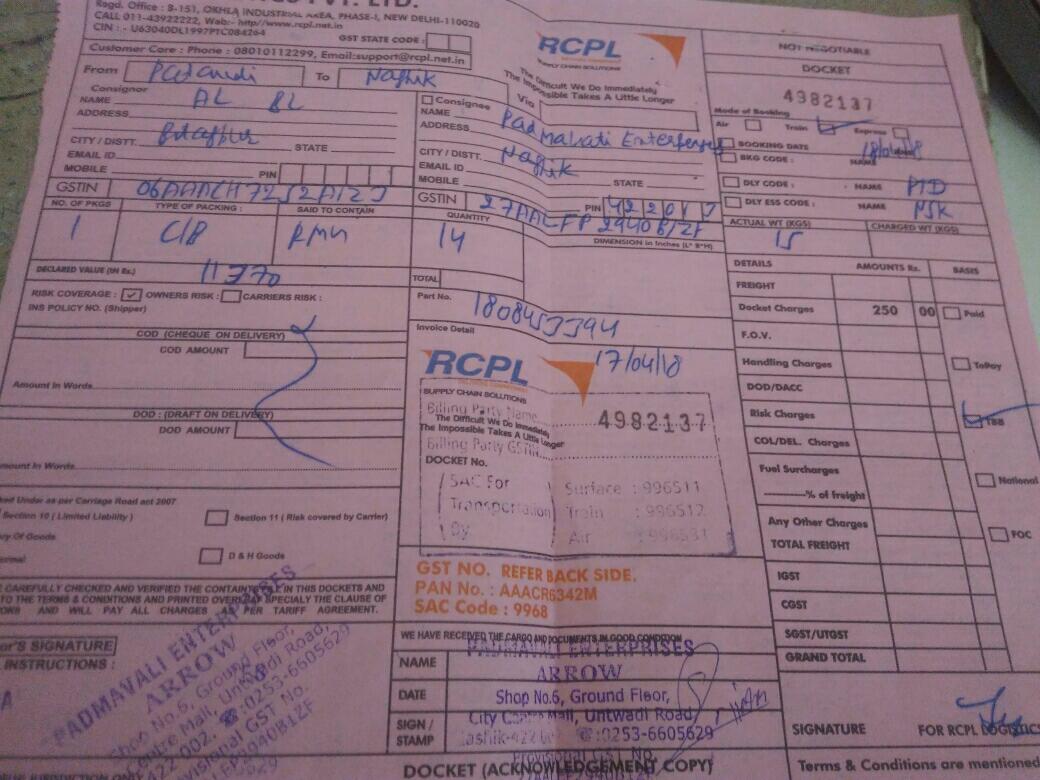 PVT. LTD.
Regd. Office : B-151, OKHLA INDUSTRIAL AREA, PHASE-I, NEW DELHI-110020
CALL 011-43922222, Web:- http//www.rcpl.net.in
CIN : - U63040DL1997PTC084264
GST STATE CODE :
Customer Care : Phone : 08010112299, Email:support@rcpl.net.in
From
To Nashik
Consignor
NAME AL BL
ADDRESS
CITY / DISTT.
STATE
EMAIL ID
MOBILE
PIN
GSTIN
RCPL
SUPPLY CHAIN SOLUTIONS
The Difficult We Do Immediately
The Impossible Takes A Little Longer
Via
Consignee
NAME Padmavati Enterprises
ADDRESS
CITY / DISTT. Nashik
EMAIL ID
STATE
MOBILE
PIN
GSTIN
NOT NEGOTIABLE
DOCKET
4982137
Mode of Booking
Air Train Express
BOOKING DATE 18/04/18
BKG CODE : NAME
DLY CODE : NAME PTD
DLY ESS CODE : NAME NSK
ACTUAL WT (KGS) CHARGED WT (KGS)
15
NO. OF PKGS TYPE OF PACKING : SAID TO CONTAIN QUANTITY DIMENSION in Inches (L* B*H)
1 C/B 14
DECLARED VALUE (IN Rs.) 11370
TOTAL
RISK COVERAGE : OWNERS RISK : CARRIERS RISK :
INS POLICY NO. (Shipper)
COD (CHEQUE ON DELIVERY)
COD AMOUNT
Amount in Words
DOD : (DRAFT ON DELIVERY)
DOD AMOUNT
mount In Words
ked Under as per Carriage Road act 2007
Section 10 ( Limited Liability )
Section 11 ( Risk covered by Carrier)
ry Of Goods
ormal
D & H Goods
CAREFULLY CHECKED AND VERIFIED THE CONTAINTS IN THIS DOCKETS AND
TO THE TERMS & CONDITIONS AND PRINTED OVERLEAF SPECIALY THE CLAUSE OF
ONS AND WILL PAY ALL CHARGES AS PER TARIFF AGREEMENT.
or'S SIGNATURE
INSTRUCTIONS :
PADMAVALI ENTERPRISES
ARROW
Shop No.6, Ground Floor,
Centre Mall, Untwadi Road,
422 002. ☎:0253-6605629
Provisional GST No.
Part No. 1808453394
Invoice Detail
17/04/18
RCPL
SUPPLY CHAIN SOLUTIONS
Billing Party Name
The Difficult We Do Immediately
The Impossible Takes A Little Longer
Billing Party GSTIN
4982137
DOCKET No.
SAC For Surface : 996511
Transportation Train : 996512
By Air : 996531
GST NO. REFER BACK SIDE.
PAN No. : AAACR6342M
SAC Code : 9968
WE HAVE RECEIVED THE CARGO AND DOCUMENTS IN GOOD CONDITION
NAME
DATE
SIGN /
STAMP
PADMAVALI ENTERPRISES
ARROW
Shop No.6, Ground Floor,
City Centre Mall, Untwadi Road
☎:0253-6605629
Provisional GST No.
DOCKET (ACKNOWLEDGEMENT COPY)
DETAILS AMOUNTS Rs. BASIS
FREIGHT
Docket Charges 250 00 Paid
F.O.V.
Handling Charges ToPay
DOD/DACC
Risk Charges TBB
COL/DEL. Charges
Fuel Surcharges
% of freight National
Any Other Charges
TOTAL FREIGHT FOC
IGST
CGST
SGST/UTGST
GRAND TOTAL
SIGNATURE FOR RCPL LOGISTICS
Terms & Conditions are mentioned